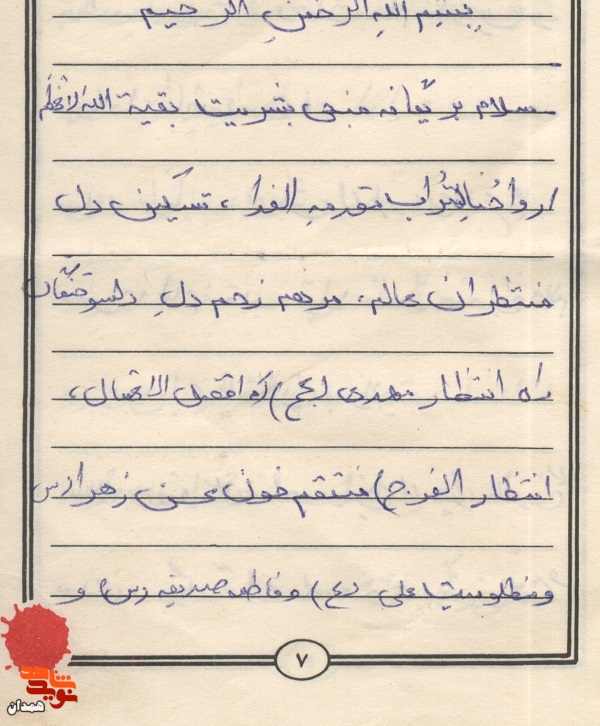 بِسْمِ اللهِ الرَّحمنِ الرَّحیم
سلام بر یگانه منجی بشریت بقیة الله الاعظم
ارواحُنا لِتُراب مقدمه الفدا ، تسکین دل
منتظران عالم ، مرهم زخم دلِ دلسوختگان
راه انتظار مهدی (عج) (که افضل الاعمال ،
انتظار الفرج) منتقم خون محسن زهرا (س)
و مظلومیت علی (ع) و فاطمه صدیقه (س) و
۷
نوید شاهد
همدان